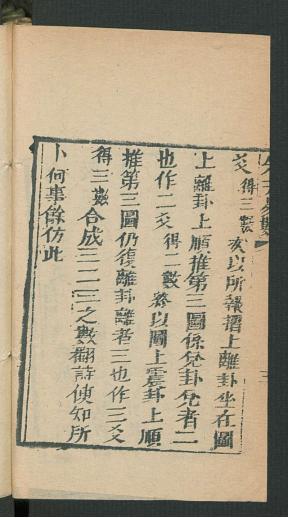 爻得三數次以所報揩上離卦坐在圖
上離卦上順推第三圖係兌卦兌者二
也作二爻得二數 叅以圖上震卦上順
推第三圖仍復離卦離者三也作三爻
得三數合成三二三之數翻詩便知所
卜何事餘仿此